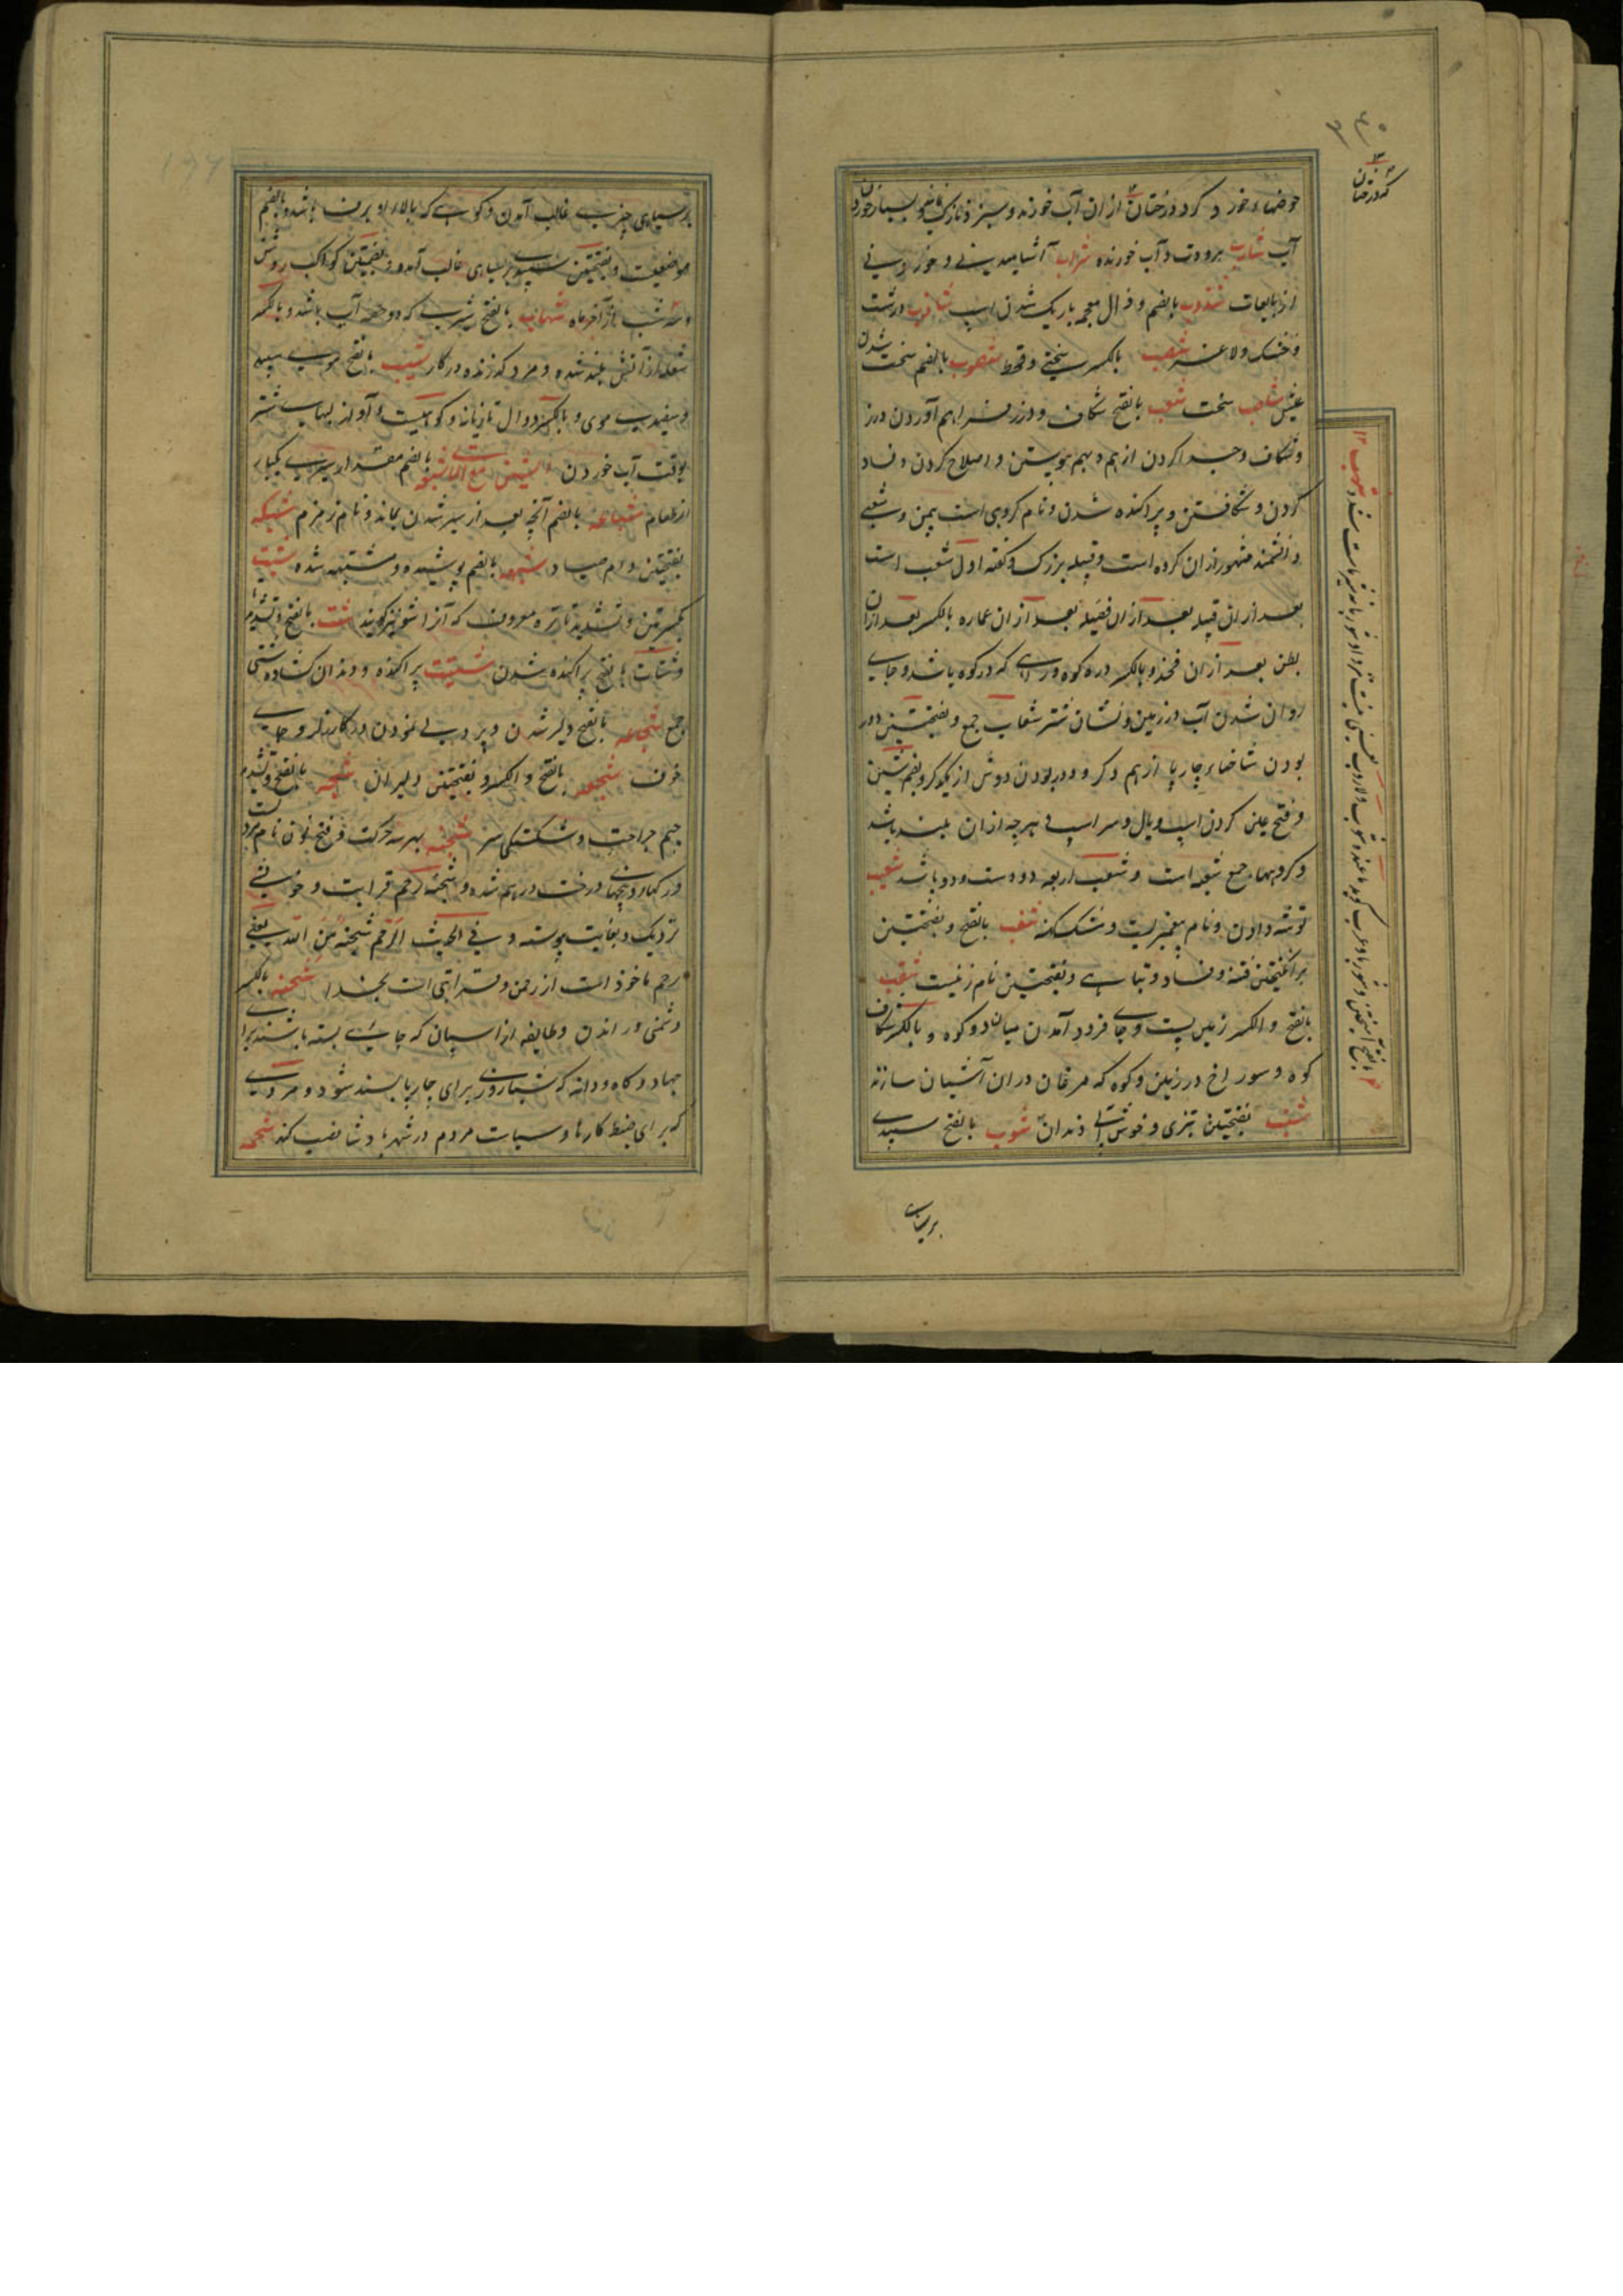 حوضهاء خورد کرد درختان از ان آب خورند و سبز و تازه و بسیار خوردن
آب شارب بروت و آب خورنده شراب آشامیدنی و خوردنی
از مایعات شذوب بالضم و ذال معجمه باریک شدن اسپ شازب درشت
و خشک و لاغر شصب بالکسر سختی و قحط شصوب بالضم سخت شدن
عیش شاصب سخت شعب بالفتح شکاف و درز فراهم آوردن درز
و شکاف و جدا کردن از هم و بهم پیوستن و اصلاح کردن و فساد
کردن و شکافتن و پراکنده شدن و نام گروهی است بیمن و شعبی
دانشمند مشهور ازان گروه است و قبیله بزرگ و گفته اول شعب است
بعد ازان قبیله بعد ازان فصیله بعد ازان عماره بالکسر بعد ازان
بطن بعد ازان فخذ و بالکسر دره کوه و راهی که در کوه باشد و جای
روان شدن آب در زمین و نشان شتر شعاب جمع و بفتحتین دور
بودن شاخهاء چارپا از هم دگر و دور بودن دوش از یکدگر و بضم شین
و فتح عین کردن اسپ و یال و سر اسپ و هرچه ازان بلند باشد
و گروهها جمع شعبه است و شعب اربعه دو دست و دو پا باشد شعیب
توشه دادن و نام پیغمبریست و مشک کهنه شغب بالفتح و بفتحتین
برانگیختن فتنه و فساد و تباهی و بفتحتین نام زنیست شقب
بالفتح و الکسر زمین پست و جای فرود آمدن میان دو کوه و بالکسر شکاف
کوه و سوراخ در زمین و کوه که مرغان دران آشیان سازند
شنب بفتحتین تیزی و خوش آبی دندان شوب بالفتح سپیدی
بالفتح آمیختن و شور با و عرب گوید ما عنده شوب و لا روب
کرد درختان
بر سیاهی
بر سیاهی چیزی غالب آمدن و کوهی که بالاء او برف باشد و بالضم
موضعیست و بفتحتین سپیدی بر سیاهی غالب آمدن و بضمتین کواکب روشن
و سه شب از آخر ماه شهاب بالفتح شیری که دو حصه آب باشد و بالکسر
شعله از آتش بلند شده و مرد گذرنده در کار شیب بالفتح پیری سپید
و سفیدی موی و بالکسر دوال تازیانه و کوهیست و آواز لبهای شتر
بوقت آب خوردن الشین مع التاء بالضم مقدار سیری یکبار
از طعام شباعه بالضم آنچه بعد از سیر شدن بماند و نام زمزم شبکه
بفتحتین دام صیاد شبهه بالضم پوشیده و مشتبه شده شبت
بکسرتین و تشدید تا تره معروف که آنرا شونیز گویند شت بالفتح و تشدید تا
و شتات بالفتح پراکنده شدن شتیت پراکنده و دندان کشاده شتی
جمع شجاعه بالفتح دلیر شدن و پردلی نمودن در کارزار و جای
خوف شجعه بالفتح و الکسر و بفتحتین دلیران شجه بالفتح و تشدید
جیم جراحت و شکستگی سر شجنه بهر سه حرکت و فتح نون نام مردیست
و رگها و بیخهای درخت درهم شده و شجنه رحم قرابت و خویشی
نزدیک و بغایت پیوسته و فی الحدیث الرحم شجنة من الله یعنی
رحم ماخوذ است از رحمن و قرابتی است بخدا شحنه بالکسر
دشمنی و راندن و طایفه از اسپان که جای بسته باشند برای
جهاد و کاه و دانه که شبارزوی برای چارپا بسند شود و مردی
که برای ضبط کارها و سیاست مردم در شهر پادشاه نصب کند شحمه